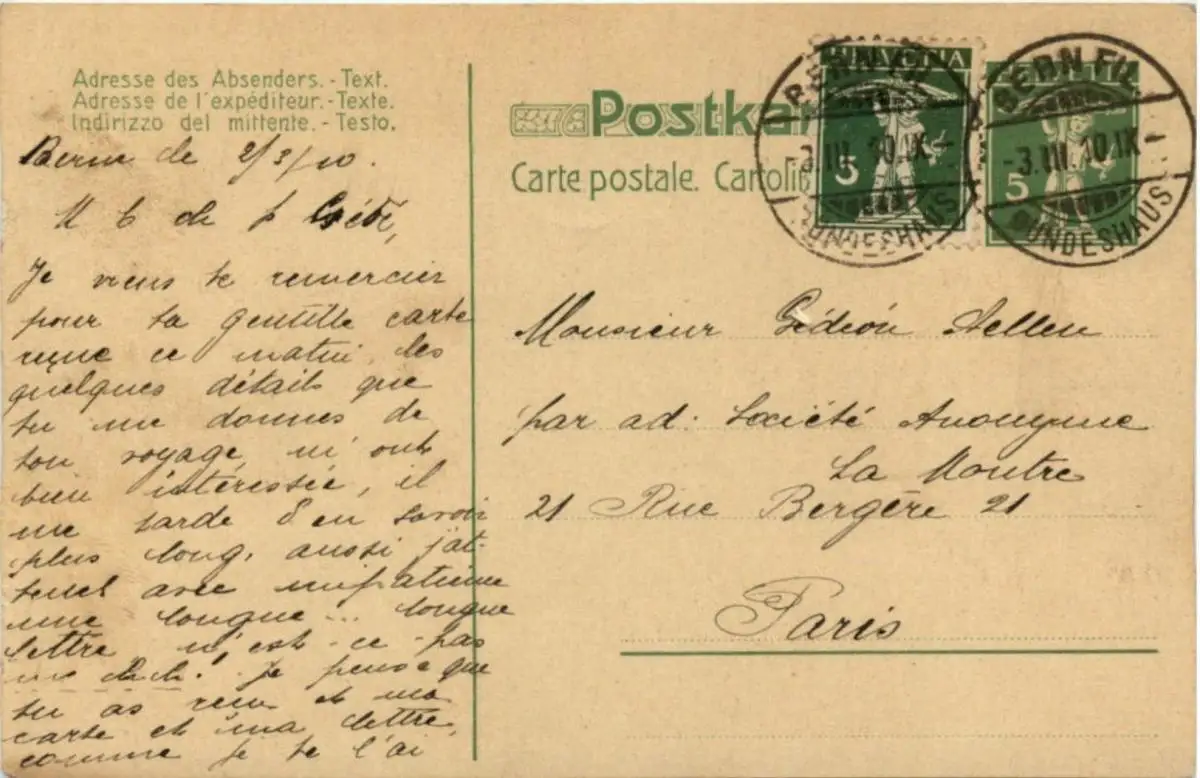 Adresse des Absenders. - Text.
Adresse de l'expéditeur. - Texte.
Indirizzo del mittente. - Testo.
Postkar
Carte postale. Cartoli
HELVETIA
5
5
BERN FIL.
-3.III.10.IX-
BUNDESHAUS
BERN FIL.
-3.III.10.IX-
BUNDESHAUS
Berne de 2/3/10.
M C de p
Je viens te remercier
pour ta gentille carte
reçue ce matin, les
quelques détails que
tu me donnes de
ton voyage, m'ont
bien intéressée, il
me tarde d'en savoir
plus long, aussi j'at-
tends avec impatience
une longue ... longue
lettre n'est-ce pas
! Je pense que
tu as reçu et ma
carte et ma lettre,
comme je te l'ai
Monsieur Gédéon
par ad: Société Anonyme
La Montre
21 Rue Bergère 21
Paris